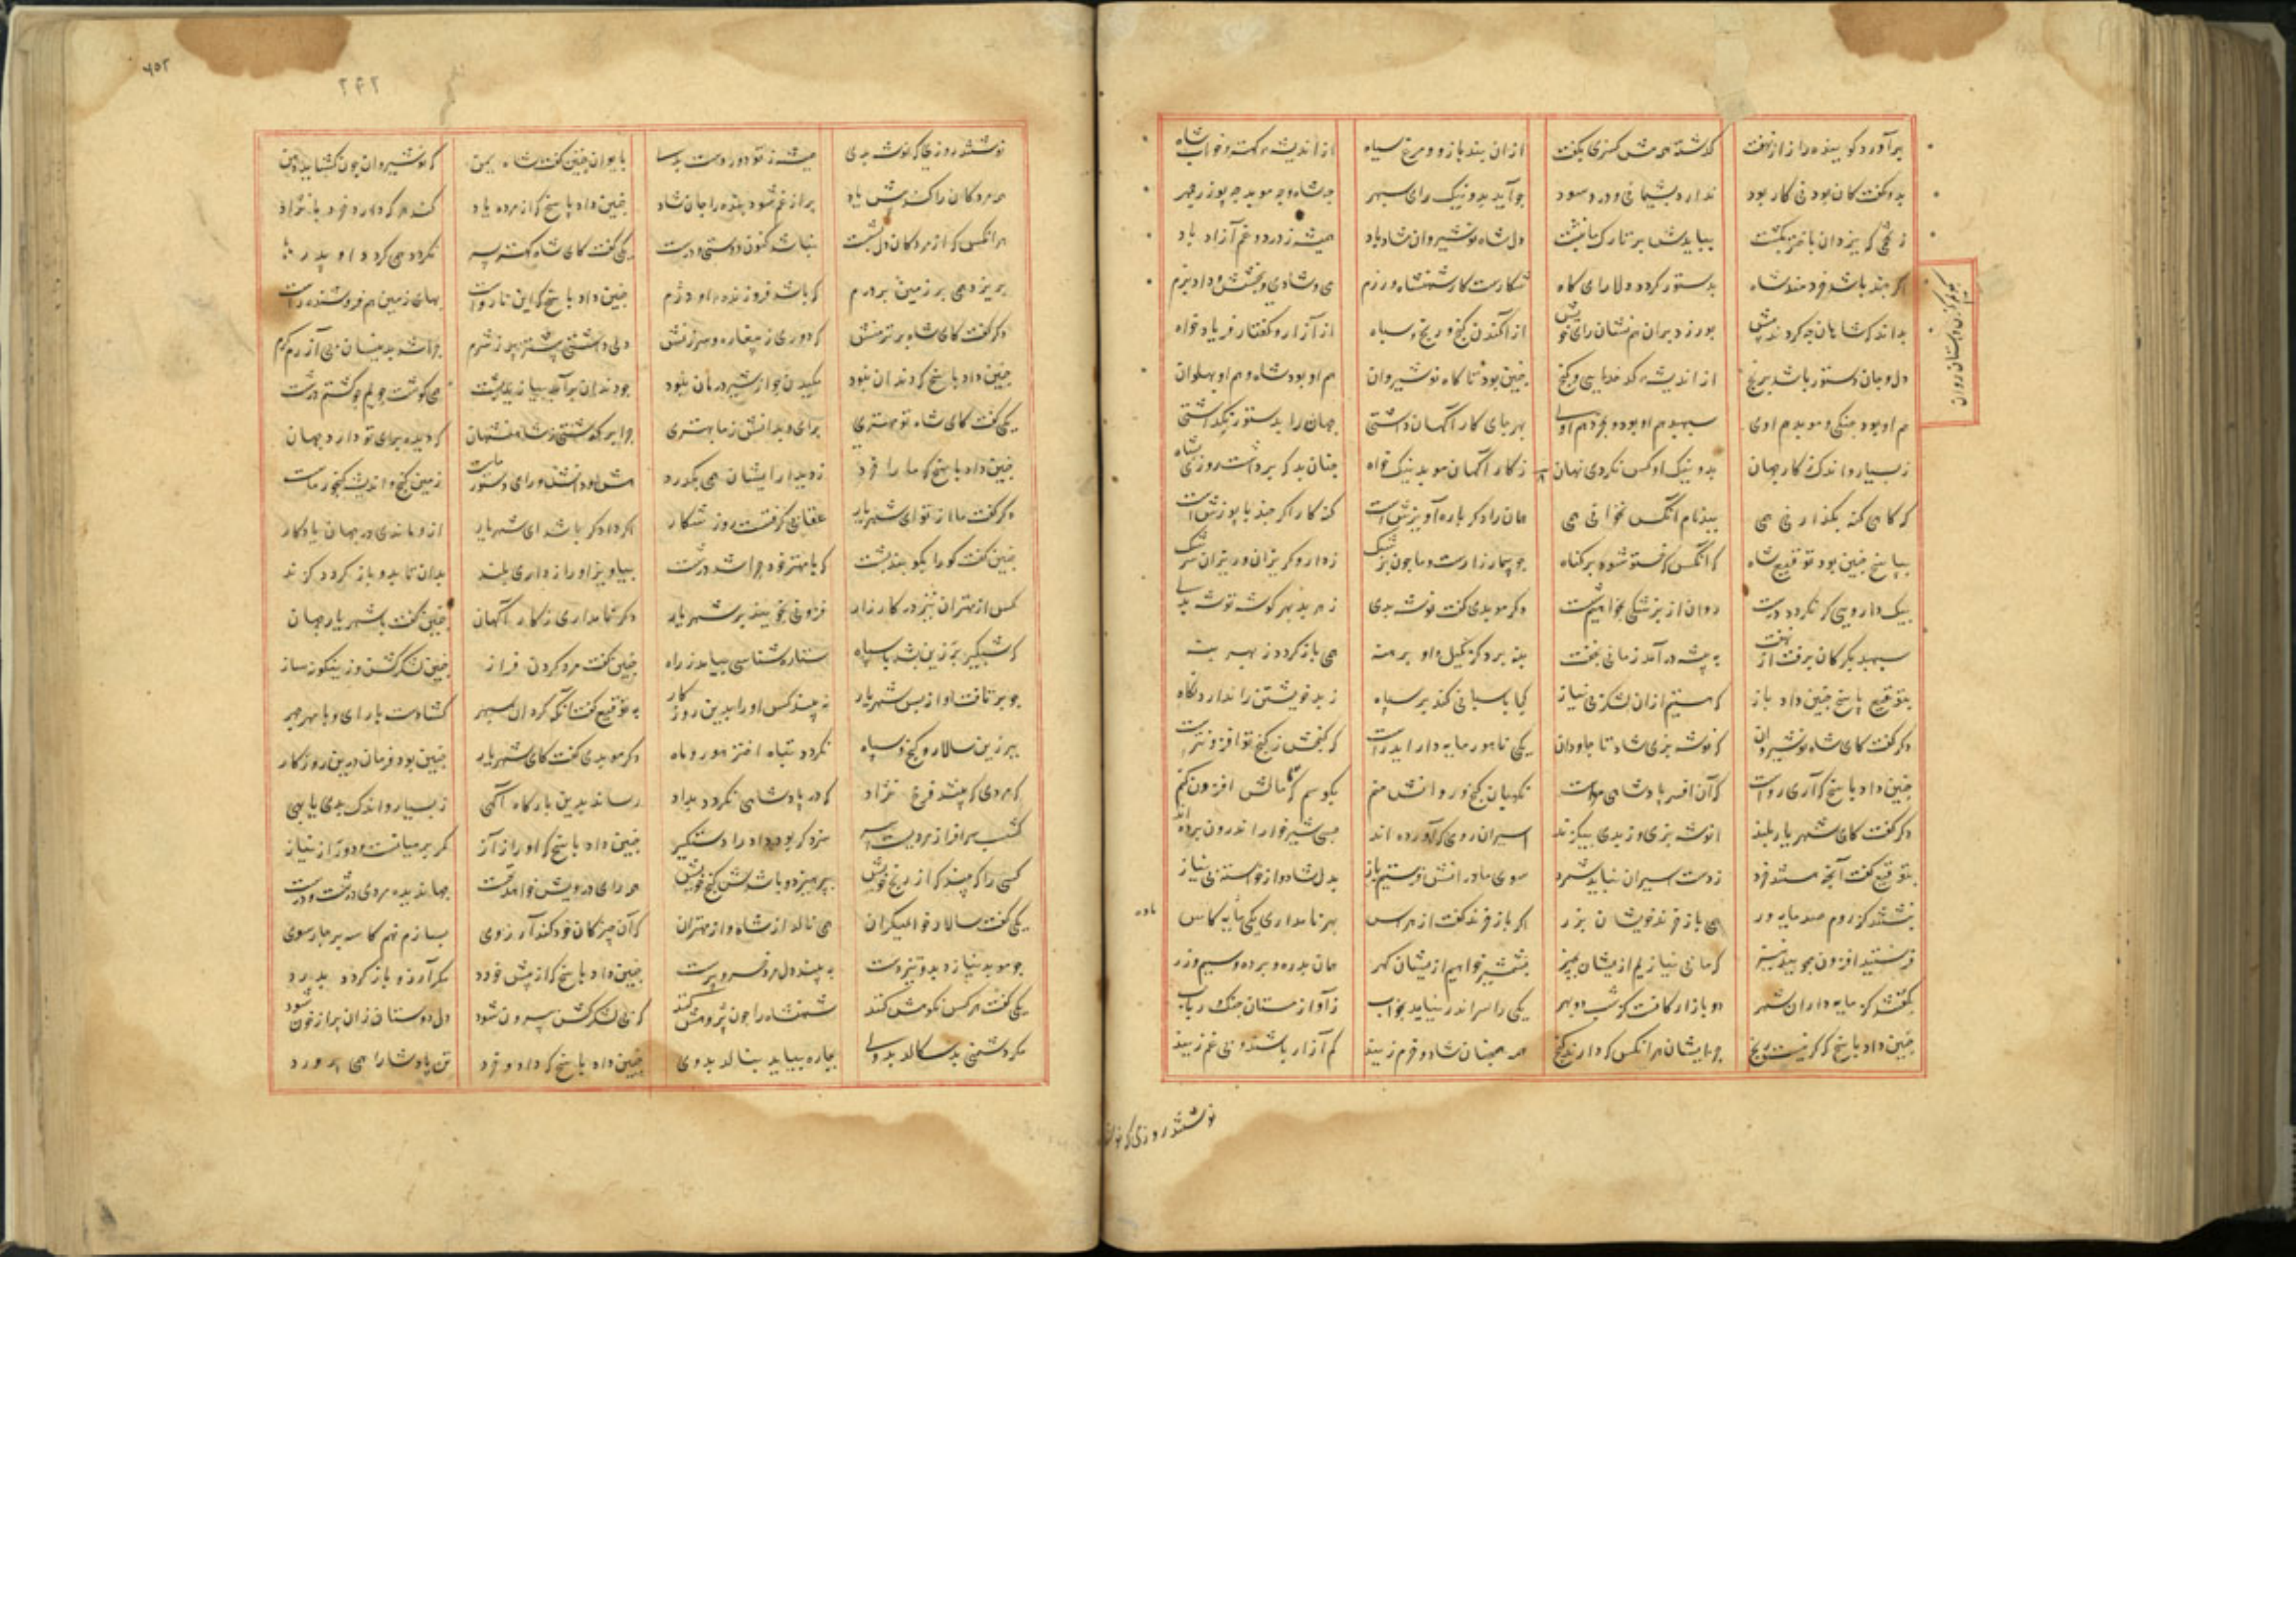 برآورد گوینده راز از نهفت گذشته همش کسری بگفت ازان بند بازو و مرغ سیاه از اندیشه گهتر و خواب شاه
بدو گفت کان بودنی کار بود ندارد پشیمانی و درد سود چو آید بد و نیک رای سپهر چه شاه و چه موبد چه بوزرجمهر
ز تخمی که یزدان باختر بکشت ببایدش بر تارک ما نبشت دل شاه نوشیروان شاد باد همیشه ز درد و غم آزاد باد
اگر چند باشد خردمند شاه بدستور گردد دلارای گاه شکارست کار شهنشاه و رزم می و شادی و بخشش و داد و بزم
بداند که شاهان چه کردند پیش بورزد بران هم نشان رای خویش از آگندن گنج و رنج سپاه از آزار و گفتار فریاد خواه
دل و جان دستور باشد برنج از اندیشه کدخدایی و گنج چنین بود تا گاه نوشیروان هم او بود شاه و هم او پهلوان
هم او بود جنگی و موبد هم اوی سپهبد هم او بود و بخرد هم اوی بهر جای کار آگهان داشتی جهان را بدستور نگذاشتی
ز بسیار و اندک ز کار جهان بد و نیک او کس نکردی نهان ز کار آگهان موبد نیک خواه چنان بد که برداشت روزی شاه
که گاهی گنه بگذارنی همی ببد نام آنکس نخوانی همی همان را دگر باره آویزش است گنه کار اگر چند با پوزش است
بپاسخ چنین بود توقیع شاه که آنکس که خستو شود بر گناه چو بیمار زارست و ما چون بزشک ز دارو گریزان و ریزان سرشک
بیک دارویی گر نگردد درست روان از بزشکی نخواهیم شست دگر موبدی گفت نوشه بدی ز هر بد بهر گوشه توشه بدی
سپهبد بگرگان برفت از نهفت به بیشه درآمد زمانی بخفت بنه برد گرگیل و او برهنه همی باز گردد ز بهر بنه
بتوقیع پاسخ چنین داد باز که هستیم ازان لشکری بی نیاز کجا پاسبانی کند بر سپاه ز بد خویشتن را ندارد نگاه
دگر گفت کای شاه نوشیروان که نوشه بزی شاد تا جاودان یکی نامور مایه دار ایدرست که گنجش ز گنج تو افزون ترست
چنین داد پاسخ که آری رواست که آن افسر پادشاهی ماست نگهبان گنج و روانش منم بکوشم که تا مالش افزون کنم
دگر گفت کای شهریار بلند انوشه بزی و ز بدی بی گزند اسیران رومی که آورده اند بسی شیرخوار اندرون برده اند
بتوقیع گفت آنچه هستند خرد ز دست اسیران نباید شمرد سوی مادرانش فرستیم باز بدل شاد و از خواسته بی نیاز
نبشتند کز روم صد مایه ور همی باز خرند خویشان بزر اگر باز خرند گفت از هراس بهر نامداری یکی مایه کاس
فرستید افزون مجویید نیز که ما بی نیازیم ازیشان بچیز بشمشیر خواهیم ازیشان گهر همان بدره و برده و سیم و زر
بگفتند کز مایه داران شهر دو بازارگانست کز شب دو بهر یکی را سر اندر نیاید بخواب ز آواز مستان و چنگ و رباب
چنین داد پاسخ کزین نیست رنج جز ایشان هر آنکس که دارند گنج همه همچنان شاد و خرم زیید کم آزار باشید و بی غم زیید
نوشتند روزی که نوشه بدی
نوشتند روزی که نوشه بدی همیشه ز تو دور دست بدی بایوان چنین گفت شاه یمن که نوشیروان چون گشاید دهن
همه مردگان را کندش یاد پر از غم شود بنده را جان شاد چنین داد پاسخ که از مرده یاد کند هر که دارد خرد با نژاد
هر آنکس که از مردگان دل بشست نباشد کنون دوستی درست یکی گفت کای شاه کهتر پسر نگردد همی گرد داد پدر
بریزد همی بر زمین بر درم که باشد فروزنده او دژم چنین داد پاسخ که این نارواست بهای زمین هم فروشنده راست
دگر گفت کای شاه برتر منش که دوری ز بیغاره و سرزنش دلی داشتی پیشتر پر ز شرم چرا شد بدینسان بی آزرم گرم
چنین داد پاسخ که دندان نبود مکیدن جز از شیر درمان نبود چو دندان برآمد ببالید پشت همی گوشت جویم چو گشتم درشت
یکی گفت کای شاه تو مهتری برای و بدانش ز ما بهتری چرا برگذشتی ز شاهنشهان که دیده برای تو دارد جهان
چنین داد پاسخ که ما را خرد ز دیدار ایشان همی بگذرد هش و دانش و رای دستور ماست زمین گنج و اندیشه گنجور ماست
دگر گفت ما از تو ای شهریار عقابی گرفتست روز شکار اگر داد گر باشد ای شهریار ازو ماندی در جهان یادگار
چنین گفت کو را بکوبند پشت که با مهتر خود چرا شد درشت بیاویز او را ز داری بلند بدان تا بدو باز گردد گزند
کس از مهتران نیز در کارزار فزونی نجویند بر شهریار دگر نامداری ز کار آگهان چنین گفت با شهریار جهان
که شبگیر برزین بشد با سپاه ستاره شناسی بیامد ز راه چنین گفت مرد گردن فراز چنین لشکر گشن و زینگونه ساز
چو برتافت او از پس شهریار نه بیند کس او را بدین روزگار بتوقیع گفت آنکه گردان سپهر گشادست با رای و با مهر چهر
ببرزین سالار و گنج و سپاه نگردد تباه اختر هور و ماه دگر موبدی گفت کای شهریار چنین بود فرمان درین روزگار
که مردی که بیند فرخ نژاد که در پادشاهی نگردد بداد رساند بدین بارگاه آگهی ز بسیار و اندک بدی یا بهی
گشسب سرافراز مردیست پیر سزد گر بود داد را دستگیر چنین داد پاسخ که او را ز آز کمر بر میانست و دور از نیاز
کسی را گزیند که از رنج خویش بپرهیزد و باشدش گنج خویش همه رای درویش خواهد نخست جهاندیده مردی درشت و درست
یکی گفت سالار خوالیگران همی نالد از شاه و از مهتران که آن چیز کان خود کند آرزوی بسازم نهم کاسه بر چار سوی
چو موبد نیازد بدو نیز دست بپیچد دل مرد خسروپرست چنین داد پاسخ که از بیش خورد مگر آرزو باز گردد بدرد
یکی گفت هر کس نکوهش کند شهنشاه را چون پژوهش کند که بی لشکر گشن بیرون شود دل دوستان زان پر از خون شود
مگر دشمنی بد سگالد بدوی بچاره بیاید بنالد بدوی چنین داد پاسخ که داد و خرد تن پادشا را همی پرورد